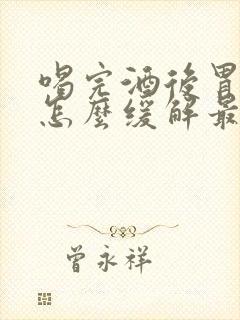 喝完酒後胃
怎麼緩解最
曾永祥